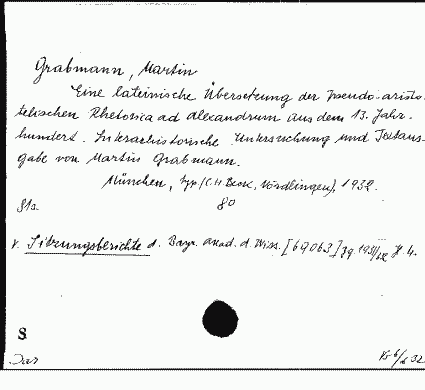 Grabmann, Martin
Eine lateinische Übersetzung der pseudo-aristo-
telischen Rhetorica ad Alexandrum aus dem 13. Jahr-
hundert. Literarhistorische Untersuchung und Textaus-
gabe von Martin Grabmann.
München, typ. (C. H. Beck, Nördlingen), 1932.
81s. 8o
v. Sitzungsberichte d. Bayr. Akad. d. Wiss. [69063] Jg. 1931/32 H. 4.
8